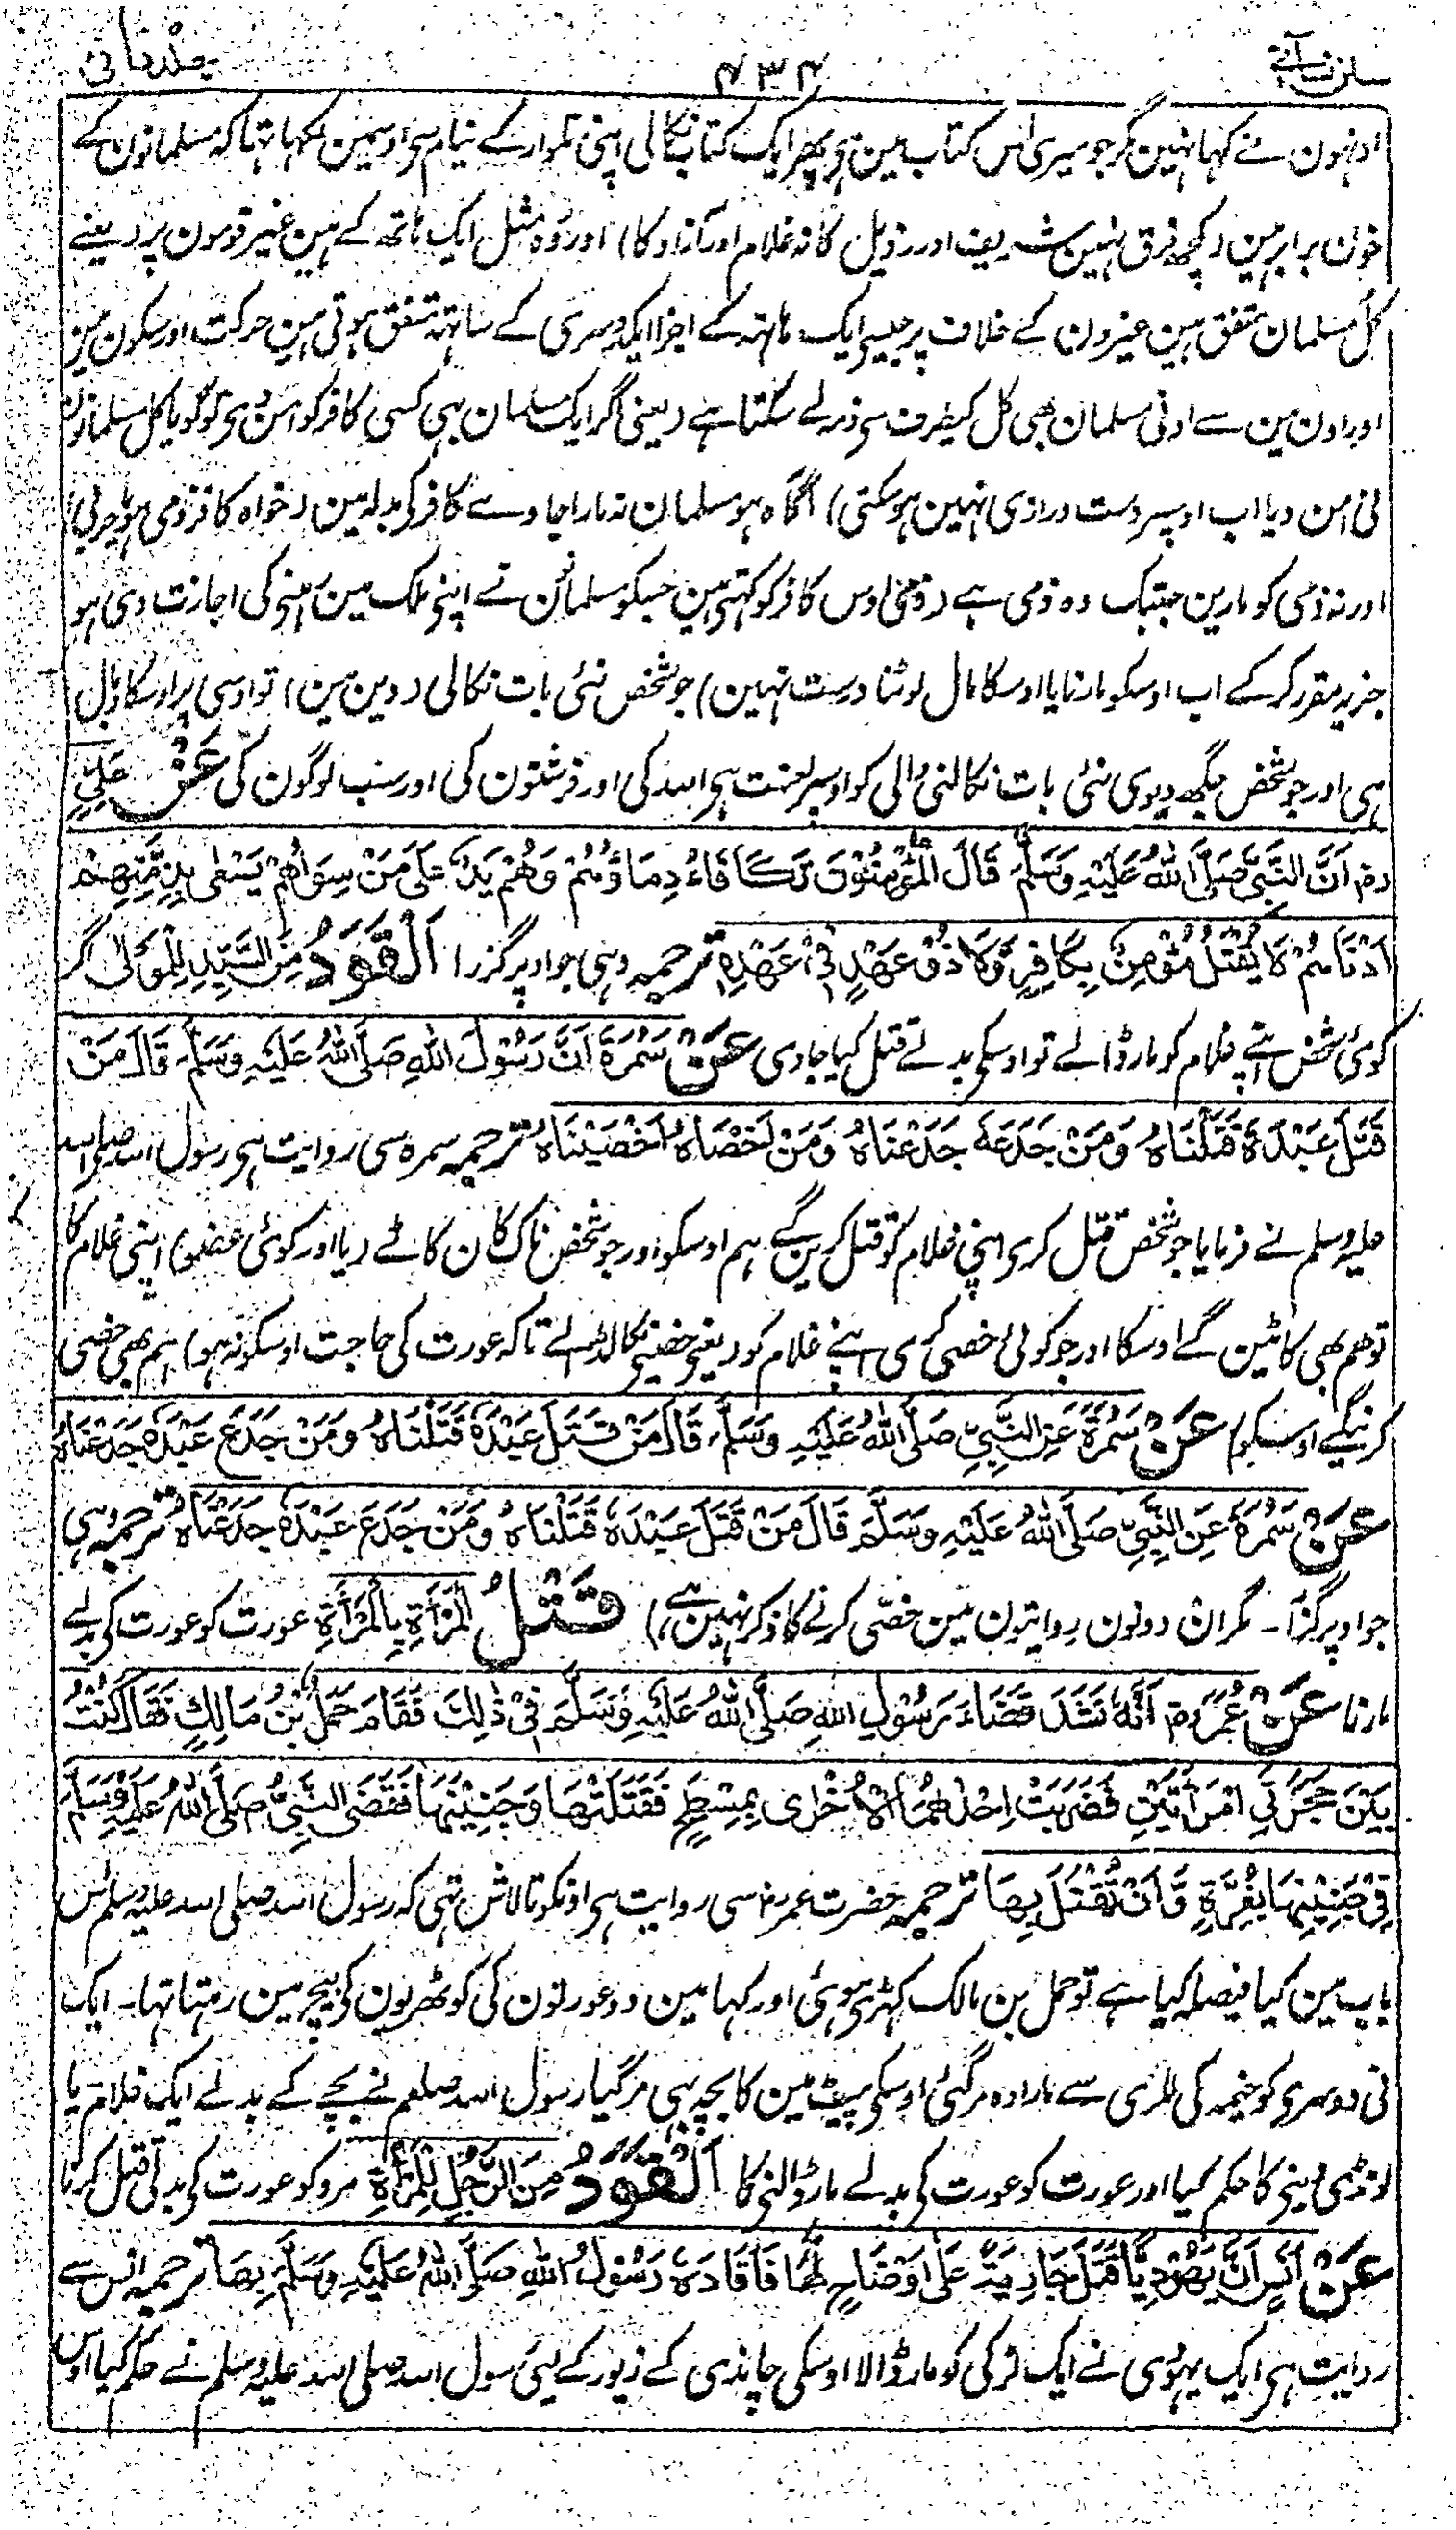 سنن نسائی ۴۳۴ جلد ثانی
اونہون نے کہا نہین مگر جو میری اس کتاب مین ہی پھر ایک کتاب نکالی اپنی تلوار کے نیام سی اوسمین لکہا تہا کہ مسلمانون کے
خون برابر ہین (کچھ فرق نہین شریف اور رذیل کا نہ غلام اور آزاد کا) اور وہ مثل ایک ہاتھ کے ہین غیر قومون پر (یعنے
کل مسلمان متفق ہین غیرون کے خلاف پر جیسی ایک ہاتہہ کے اجزا ایکدوسری کے ساتہہ متفق ہوتی ہین حرکت اور سکون مین
اور اون مین سے ادنی مسلمان بھی کل کیطرف سی ذمہ لے سکتا ہے (یعنی اگر ایک مسلمان بہی کسی کافر کو امن دی تو گویا کل مسلمانون
نی امن دیا اب اوسپر دست درازی نہین ہوسکتی) آگاہ ہو مسلمان نہ مارا جاوے کافر کی بدلہ مین (خواہ کافر ذمی ہو یا حربی)
اور نہ ذمی کو مارین جبتک وہ ذمی ہے (ذمی اوس کافر کو کہتی ہین جسکو مسلمانون نے اپنی ملک مین رہنی کی اجازت دی ہو
جزیہ مقرر کرکے اب اوسکو مارنا یا اوسکا مال لوٹنا درست نہین) جو شخص نئی بات نکالی (دین مین) تو اوسی پر اوسکا وبال
ہی اور جو شخص جگھ دیوی نئی بات نکالنی والی کو اوسپر لعنت ہی اسد کی اور فرشتون کی اور سب لوگون کی عَنْ عَلِيٍّ
رض اَنَّ النَّبِيَّ صَلَّى اللّٰهُ عَلَيْهِ وَسَلَّمَ قَالَ الْمُؤْمِنُوْنَ تَكَافَاُ دِمَاؤُهُمْ وَهُمْ يَدٌ عَلٰى مَنْ سِوَاهُمْ يَسْعٰى بِذِمَّتِهِمْ
اَدْنَاهُمْ لَا يُقْتَلُ مُؤْمِنٌ بِكَافِرٍ وَّلَا ذُوْ عَهْدٍ فِيْ عَهْدِهٖ ترجمہ وہی جو اوپر گزرا اَلْقَوَدُ مِنَ السَّيِّدِ لِلْمَوْلٰى اگر
کوئی شخص اپنے غلام کو مار ڈالے تو اوسکی بدلے قتل کیا جاوی عَنْ سَمُرَةَ اَنَّ رَسُوْلَ اللّٰهِ صَلَّى اللّٰهُ عَلَيْهِ وَسَلَّمَ قَالَ مَنْ
قَتَلَ عَبْدَهٗ قَتَلْنَاهُ وَمَنْ جَدَعَهٗ جَدَعْنَاهُ وَمَنْ اَخْصَاهُ اَخْصَيْنَاهُ ترجمہ سمرہ سی روایت ہی رسول اسد صلی اسد
علیہ وسلم نے فرمایا جو شخص قتل کری اپنی غلام کو قتل کرین گے ہم اوسکو اور جو شخص ناک کان کاٹے (یا اور کوئی عضو) اپنی غلام کا
تو ہم بھی کاٹین گے اوسکا اور جو کوئی خصی کری اپنے غلام کو (یعنی خصیے نکال ڈالے تاکہ عورت کی حاجت اوسکو نہ ہو) ہم بھی خصی
کرینگے اوسکو عَنْ سَمُرَةَ عَنِ النَّبِيِّ صَلَّى اللّٰهُ عَلَيْهِ وَسَلَّمَ قَالَ مَنْ قَتَلَ عَبْدَهٗ قَتَلْنَاهُ وَمَنْ جَدَعَ عَبْدَهٗ جَدَعْنَاهُ
عَنْ سَمُرَةَ عَنِ النَّبِيِّ صَلَّى اللّٰهُ عَلَيْهِ وَسَلَّمَ قَالَ مَنْ قَتَلَ عَبْدَهٗ قَتَلْنَاهُ وَمَنْ جَدَعَ عَبْدَهٗ جَدَعْنَاهُ ترجمہ وہی
جو اوپر گزرا ۔ مگر ان دونون روایتون مین خصی کرنے کا ذکر نہین ہے) قَتْلُ الْمَرْأَةِ بِالْمَرْأَةِ عورت کو عورت کی بدلے
مارنا عَنْ عُمَرَ رض اَنَّهٗ نَشَدَ قَضَاءَ رَسُوْلِ اللّٰهِ صَلَّى اللّٰهُ عَلَيْهِ وَسَلَّمَ فِيْ ذٰلِكَ فَقَامَ حَمَلُ بْنُ مَالِكٍ فَقَالَ كُنْتُ
بَيْنَ حُجْرَتَيِ امْرَاَتَيْنِ فَضَرَبَتْ اِحْدٰهُمَا الْاُخْرٰى بِمِسْطَحٍ فَقَتَلَتْهَا وَجَنِيْنَهَا فَقَضَى النَّبِيُّ صَلَّى اللّٰهُ عَلَيْهِ وَسَلَّمَ
فِيْ جَنِيْنِهَا بِغُرَّةٍ وَّاَنْ تُقْتَلَ بِهَا ترجمہ حضرت عمر رض سی روایت ہی اونکو تالاش تہی کہ رسول اسد صلی اسد علیہ وسلم اس
باب مین کیا فیصلہ کیا ہے تو حمل بن مالک کہڑی ہوئی اور کہا مین دو عورتون کی کوٹھریون کی بیچ مین رہتا تہا ۔ ایک
نی دوسری کو خیمہ کی لکڑی سے مارا وہ مرگئی اوسکی پیٹ مین کا بچہ بہی مرگیا رسول اسد صلعم نے بچے کے بدلے ایک غلام یا
لونڈی دینی کا حکم کیا اور عورت کو عورت کی بدلے مار ڈالنی کا اَلْقَوَدُ مِنَ الرَّجُلِ لِلْمَرْأَةِ مرد کو عورت کی بدلی قتل کرنا
عَنْ اَنَسٍ اَنَّ يَهُوْدِيًّا قَتَلَ جَارِيَةً عَلٰى اَوْضَاحٍ لَّهَا فَاَقَادَهٗ رَسُوْلُ اللّٰهِ صَلَّى اللّٰهُ عَلَيْهِ وَسَلَّمَ بِهَا ترجمہ انس سے
روایت ہی ایک یہودی نے ایک لڑکی کو مار ڈالا اوسکی چاندی کے زیور کے لیی رسول اسد صلی اسد علیہ وسلم نے حکم کیا اوس